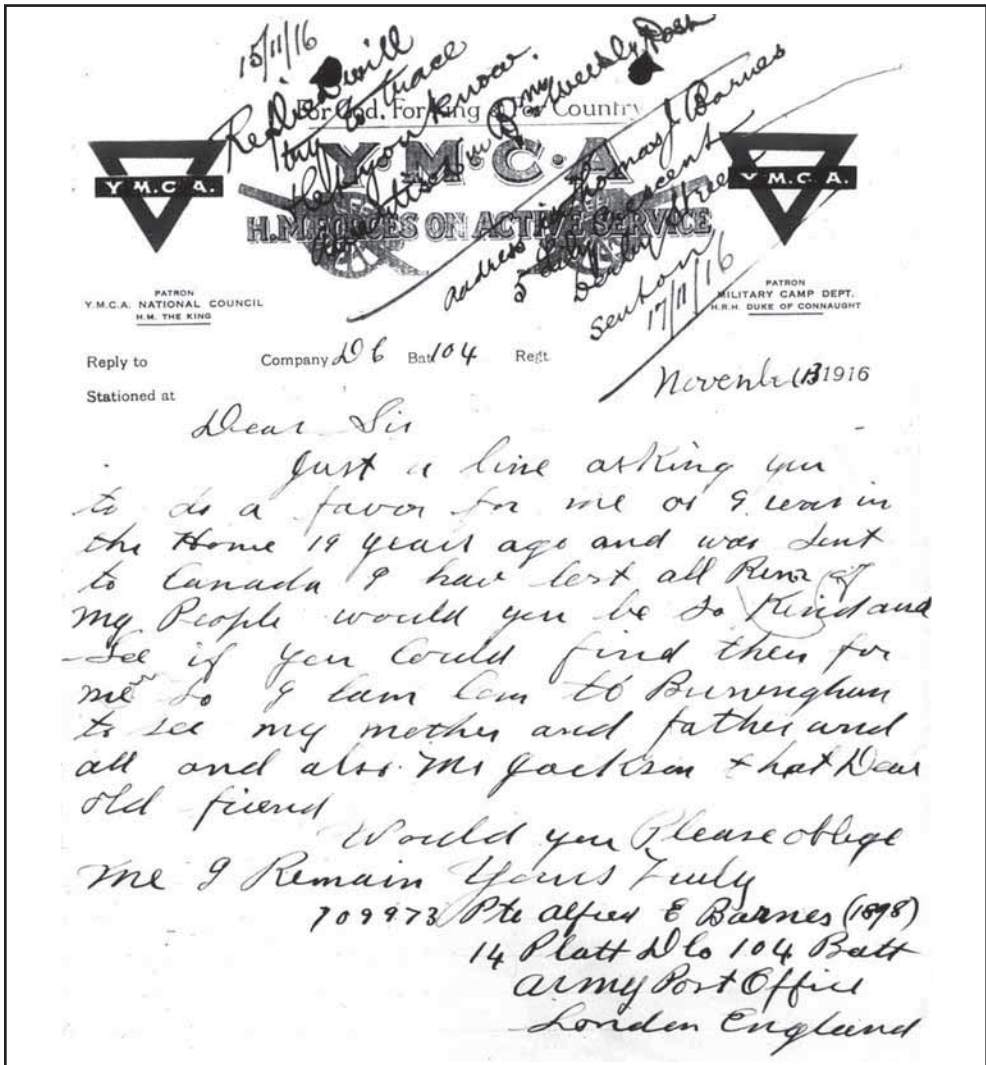 15/11/16
Replied will
try to trace
& let you know.
Advertised in B'ham Weekly Post
For God, For King & For Country
Y·M·C·A
H.M. FORCES ON ACTIVE SERVICE
Y M.C.A.
Y M.C.A.
Thomas J Barnes
address
5 Crescent
sent on
17/11/16
PATRON
Y.M.C.A. NATIONAL COUNCIL
H.M. THE KING
PATRON
MILITARY CAMP DEPT.
H.R.H. DUKE OF CONNAUGHT
Reply to Company D C Bat 104 Regt.
Stationed at
November 13 1916
Dear Sir
Just a line asking you
to do a favor for me as I was in
the Home 19 years ago and was sent
to Canada I hav lost all Runs of
my People would you be so Kind and
See if you Could find them for
me so I cam Com to Burningham
to see my mother and father and
all and also Mr Jackson that Dear
old friend
Would you Please oblege
me I Remain Yours Truly
709973 Pte Alfred E Barnes (1898)
14 Platt D Co 104 Batt
Army Post Office
London England